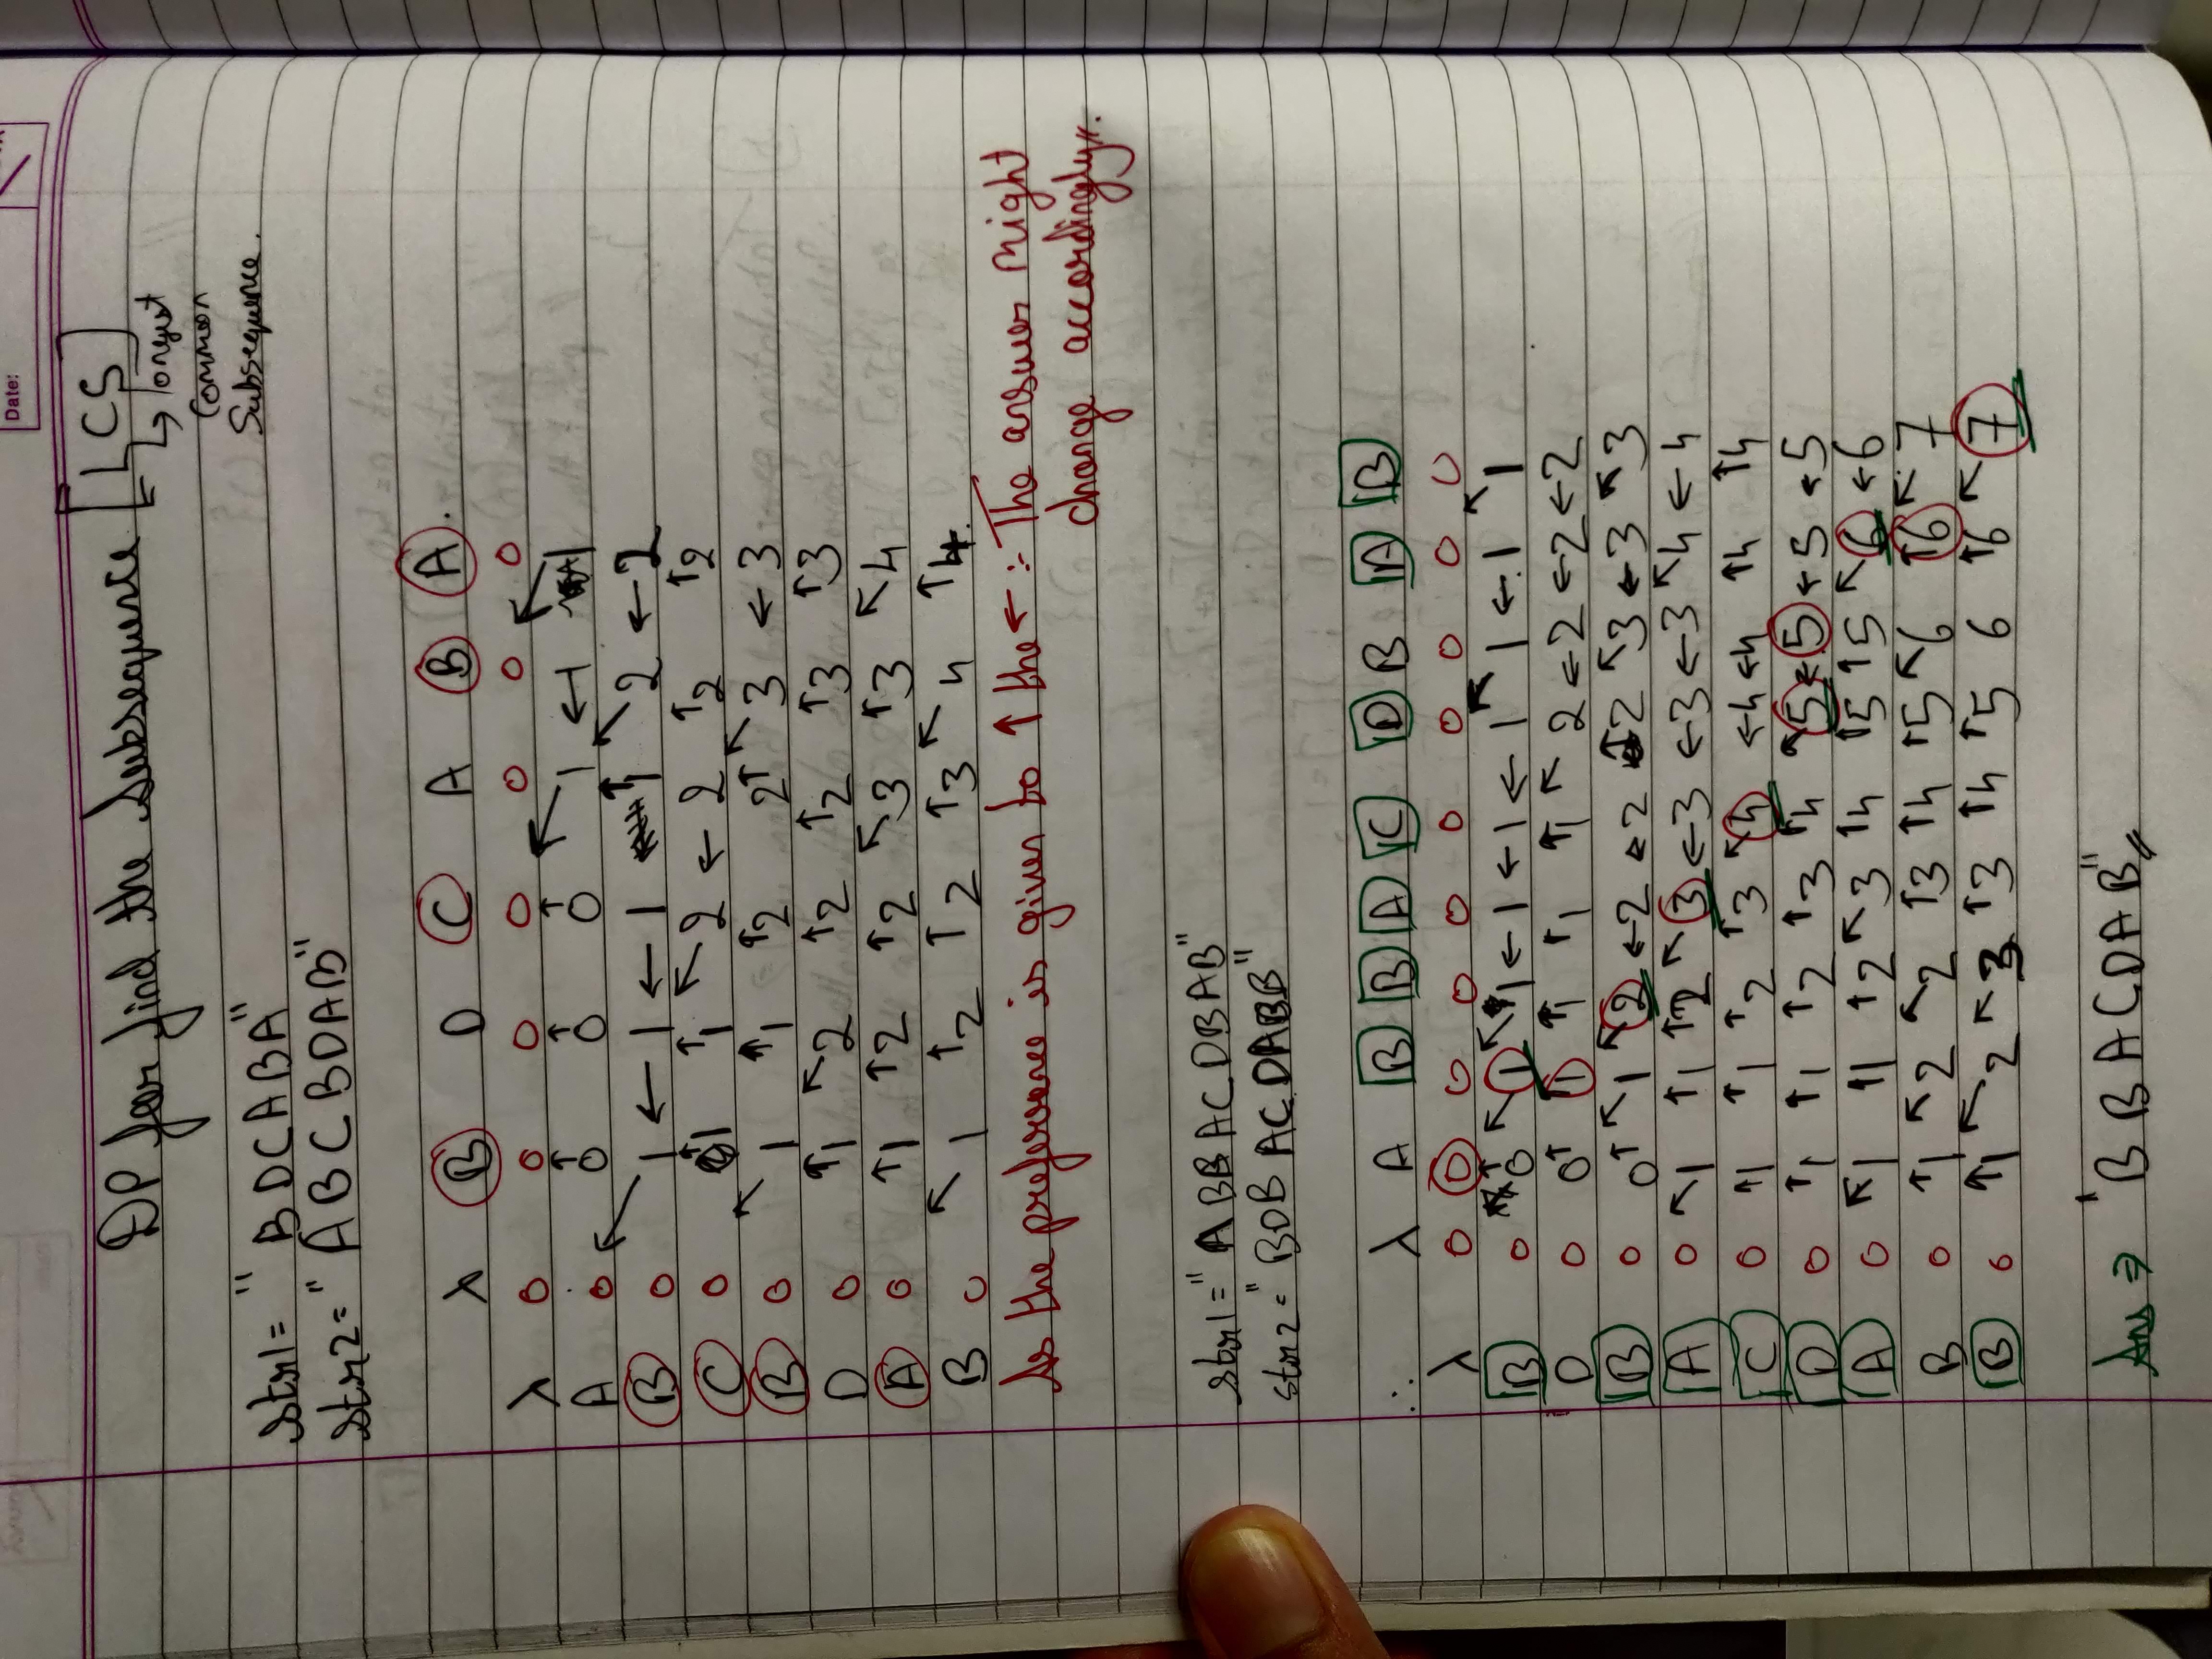 Date:
DP for find the Subsequence [LCS]
↳ longest
Common
Subsequence.
str1= "BDCABA"
str2= "ABCBDAB"
λ B D C A B A.
λ 0 0 0 0 0 0 0
A 0 ↑0 ↑0 ↑0 ↖1 ←1 ↖1
B 0 ↖1 ←1 ←1 ↑1 ↖2 ←2
C 0 ↑1 ↑1 ↖2 ←2 ↑2 ↑2
B 0 ↖1 ↑1 ↑2 2↑ ↖3 ←3
D 0 ↑1 ↖2 ↑2 ↑2 ↑3 ↑3
A 0 ↑1 ↑2 ↑2 ↖3 ↑3 ↖4
B 0 ↖1 ↑2 ↑2 ↑3 ↖4 ↑4.
As the preference is given to ↑ the ← :- The answer might
change accordingly.
str1= "ABBACDBAB"
str2= "BDBACDABB"
∴ λ A B B A C D B A B
λ 0 0 0 0 0 0 0 0 0 0
B 0 ↑0 ↖1 ↖1 ←1 ←1 ←1 ↖1 ←1 ↖1
D 0 0↑ ↑1 ↑1 ↑1 ↑1 ↖2 ←2 ←2 ←2
B 0 0↑ ↖1 ↖2 ←2 ←2 ↑2 ↖3 ←3 ↖3
A 0 ↖1 ↑1 ↑2 ↖3 ←3 ←3 ←3 ↖4 ←4
C 0 ↑1 ↑1 ↑2 ↑3 ↖4 ←4 ←4 ↑4 ↑4
D 0 ↑1 ↑1 ↑2 ↑3 ↑4 ↖5 ←5 ←5 ←5
A 0 ↖1 ↑1 ↑2 ↖3 ↑4 ↑5 ↑5 ↖6 ←6
B 0 ↑1 ↖2 ↖2 ↑3 ↑4 ↑5 ↖6 ↑6 ↖7
B 0 ↑1 ↖2 ↖3 ↑3 ↑4 ↑5 6 ↑6 ↖7
Ans ⇒ "BBACDAB"